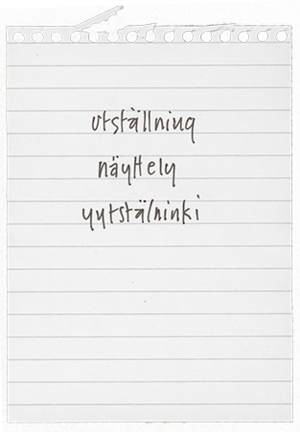 utställning
näyttely
yytstälninki